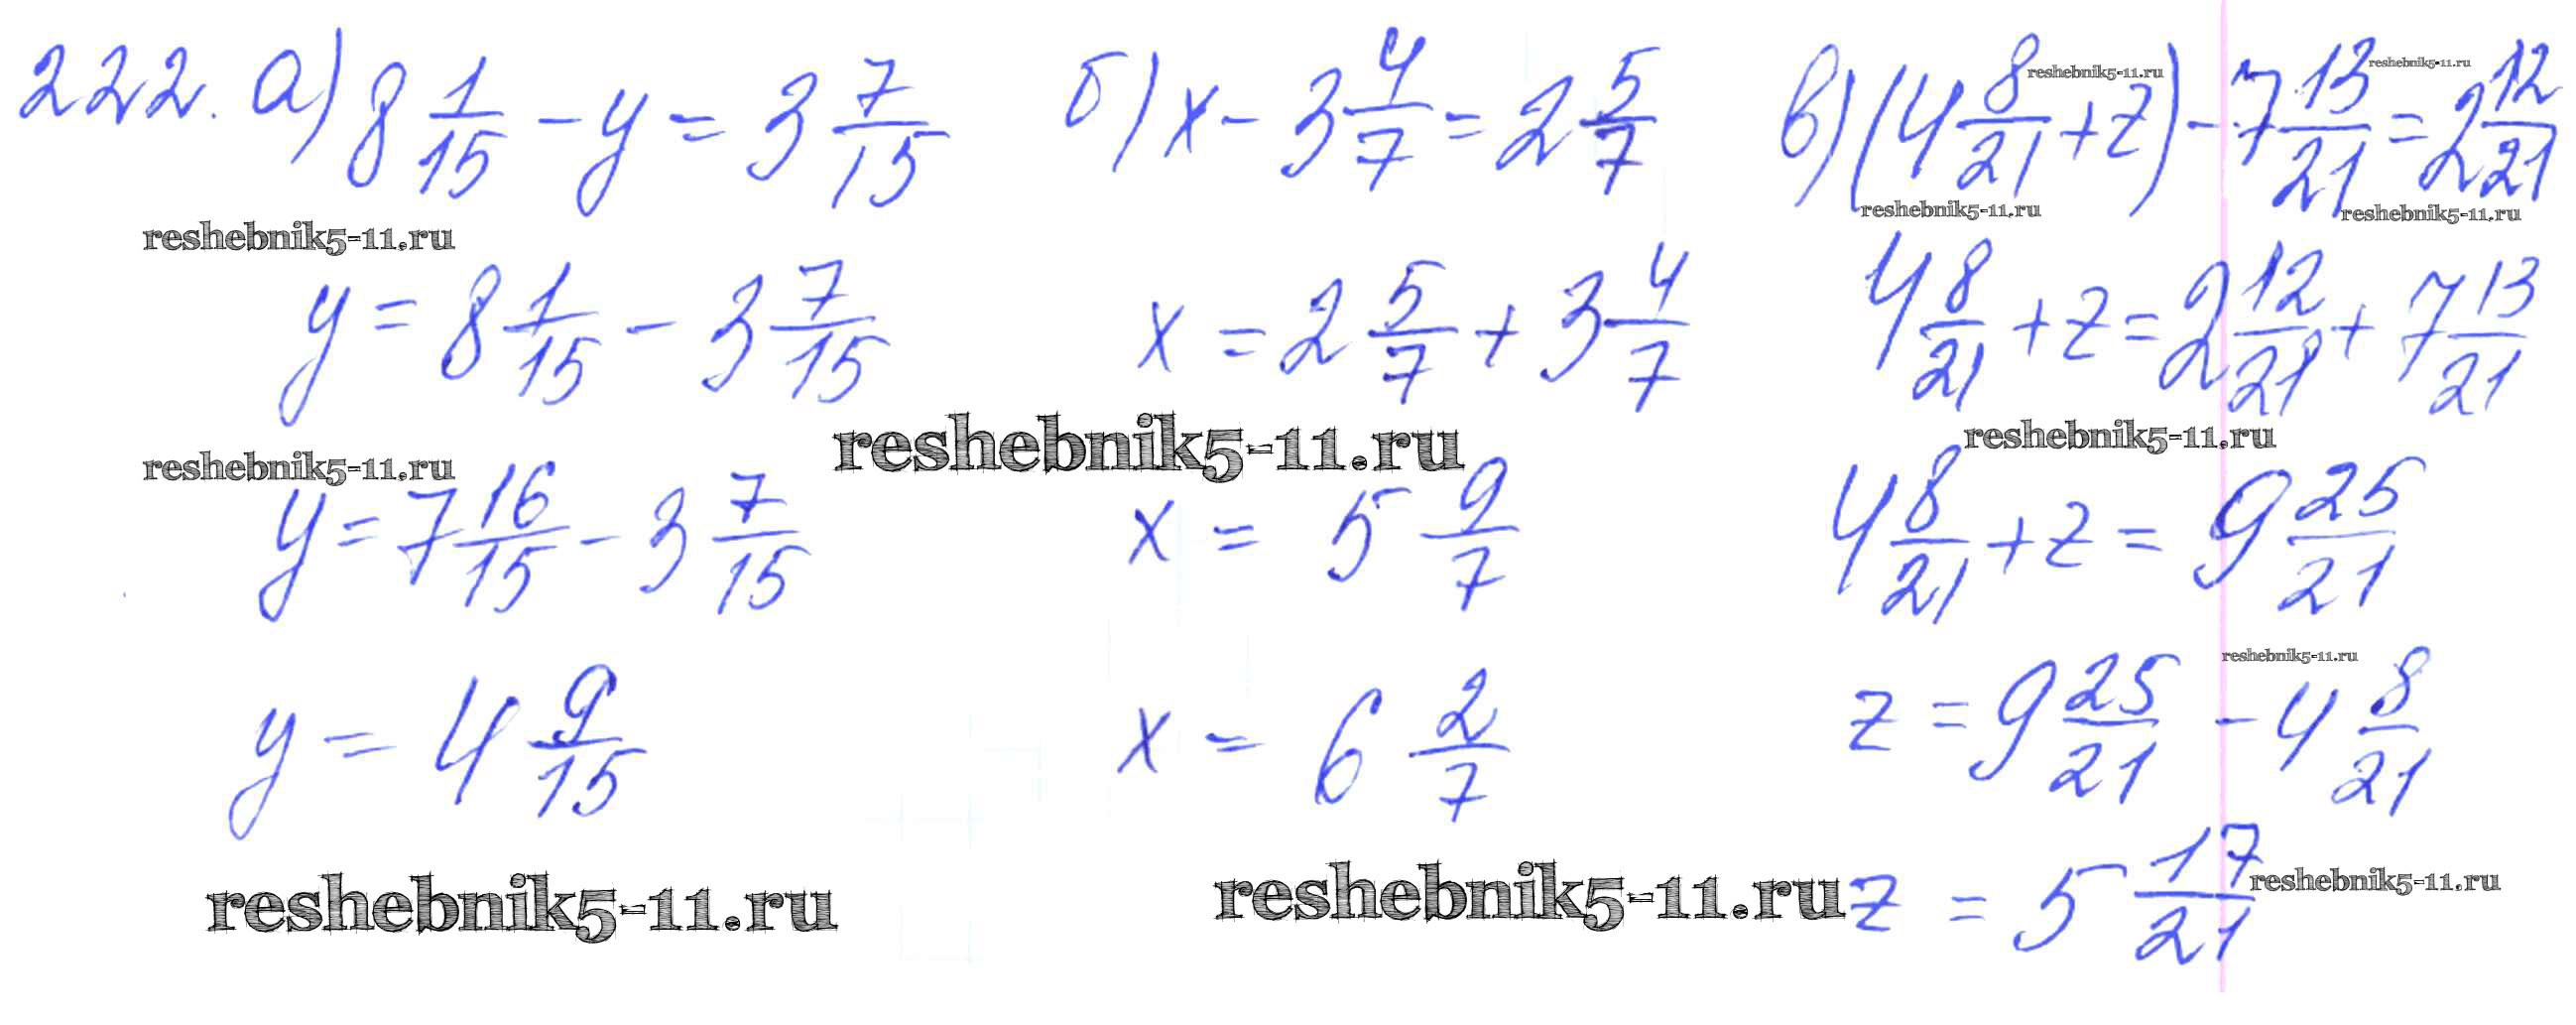 222. а) 8 1/15 - y = 3 7/15
reshebnik5-11.ru
y = 8 1/15 - 3 7/15
reshebnik5-11.ru
y = 7 16/15 - 3 7/15
y = 4 9/15
reshebnik5-11.ru
б) x - 3 4/7 = 2 5/7
x = 2 5/7 + 3 4/7
reshebnik5-11.ru
x = 5 9/7
x = 6 2/7
reshebnik5-11.ru
в) (4 8/21 + z) - 7 13/21 = 2 12/21
reshebnik5-11.ru
reshebnik5-11.ru
reshebnik5-11.ru
reshebnik5-11.ru
4 8/21 + z = 2 12/21 + 7 13/21
reshebnik5-11.ru
4 8/21 + z = 9 25/21
reshebnik5-11.ru
z = 9 25/21 - 4 8/21
z = 5 17/21
reshebnik5-11.ru